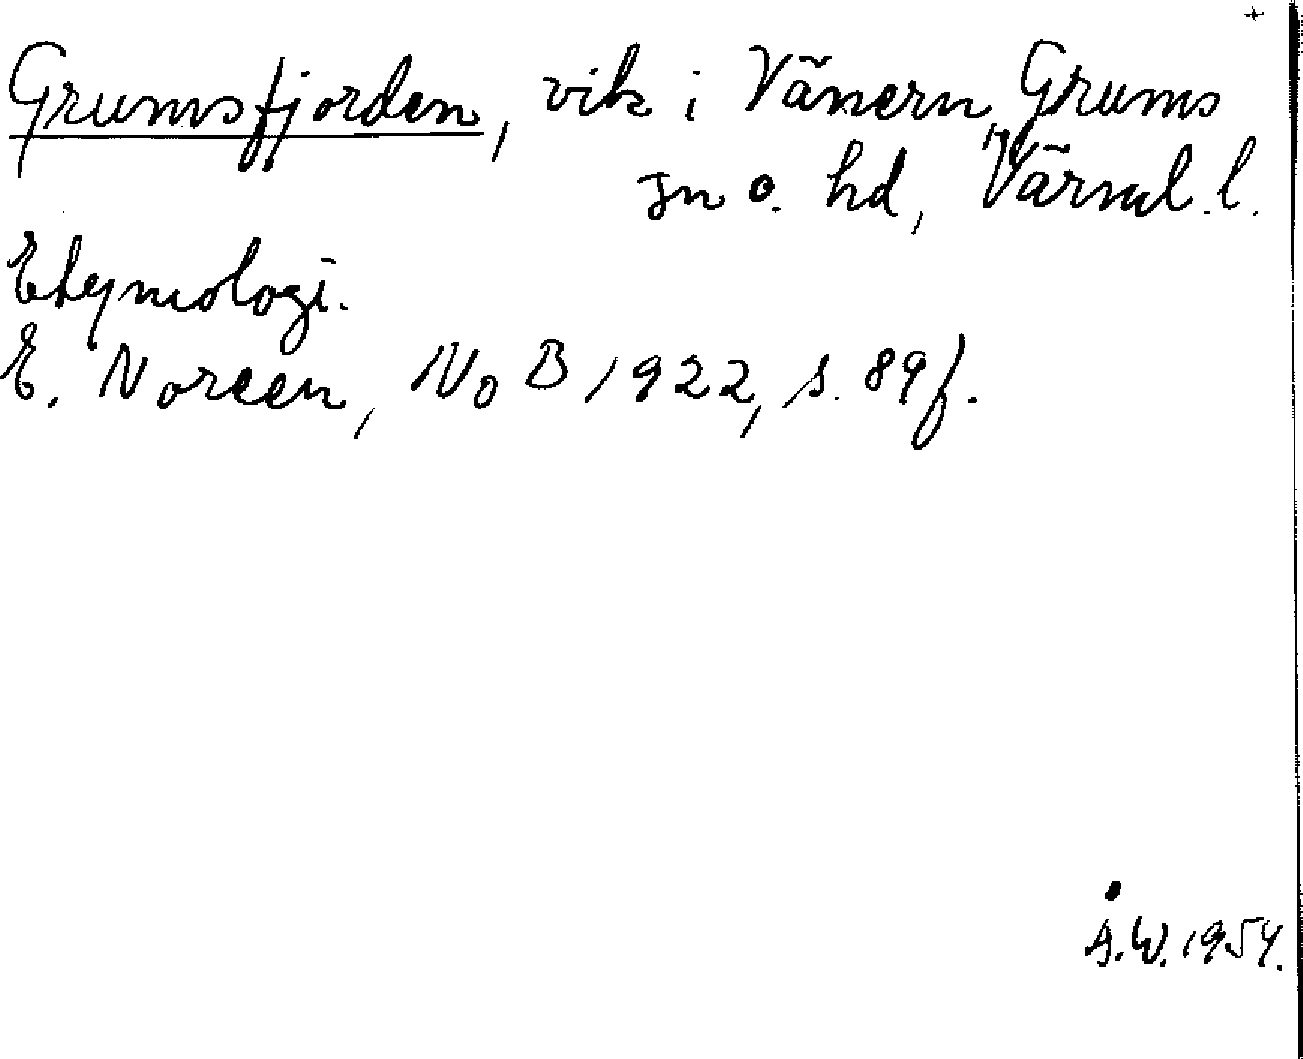 +
Grumsfjorden, vik i Vänern, Grums
sn o. hd, Värml. l.
Etymologi.
E. Noreen, NoB 1922, s. 89f.
Å.W. 1954.